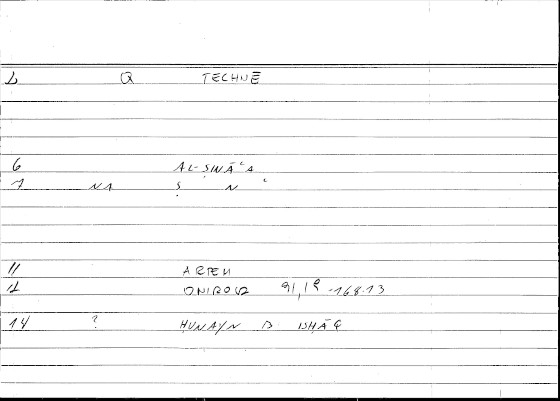 1 Q TECHNĒ
6 AL-ṢINĀʿA
7 NA Ṣ N ʿ
11 ARTEM
12 ONIROCR 91,19 -168.13
14 ? ḤUNAYN B ISḤĀQ